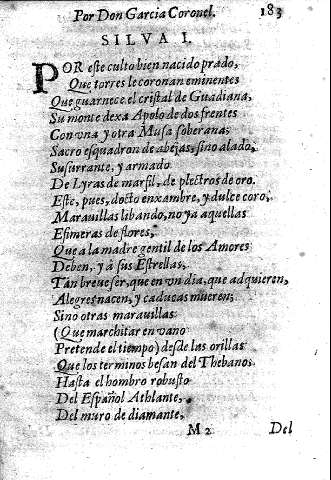 Por Don Garcia Coronel. 183
SILVA I.
POR este culto bien nacido prado,
Que torres le coronan eminentes
Que guarnece el cristal de Guadiana,
Su monte dexa Apolo de dos frentes
Con vna y otra Musa soberana;
Sacro esquadron de abejas, sino alado,
Susurrante, y armado
De Lyras de marfil, de plectros de oro.
Este, pues, docto enxambre, y dulce coro,
Marauillas libando, no ya aquellas
Efimeras de flores,
Que a la madre gentil de los Amores
Deben, y à sus Estrellas,
Tan breue ser, que en vn dia, que adquieren,
Alegres nacen, y caducas mueren;
Sino otras marauillas
(Que marchitar en vano
Pretende el tiempo) desde las orillas
Que los terminos besan del Thebano,
Hasta el hombro robusto
Del Español Athlante,
Del muro de diamante,
M2 Del